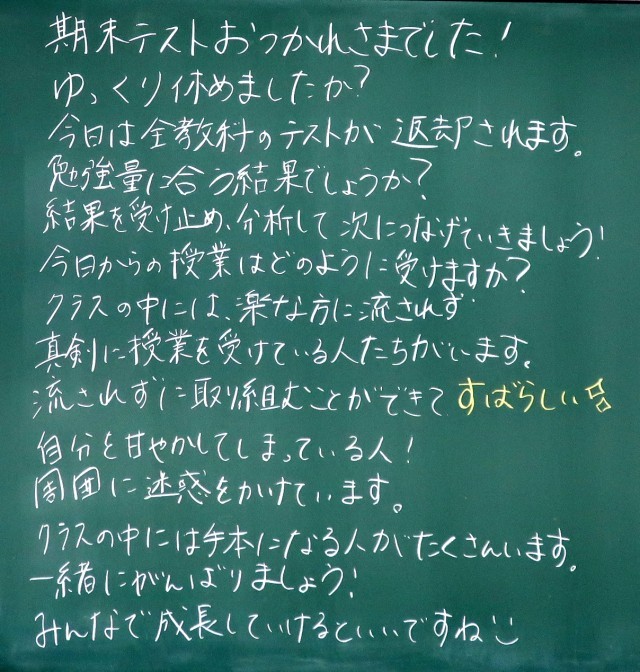 期末テストおつかれさまでした!
ゆっくり休めましたか?
今日は全教科のテストが返却されます。
勉強量に合う結果でしょうか?
結果を受け止め、分析して次につなげていきましょう!
今日からの授業はどのように受けますか?
クラスの中には、楽な方に流されず
真剣に授業を受けている人たちがいます。
流されずに取り組むことができてすばらしい☆
自分を甘やかしてしまっている人!
周囲に迷惑をかけています。
クラスの中には手本になる人がたくさんいます。
一緒にがんばりましょう!
みんなで成長していけるといいですね